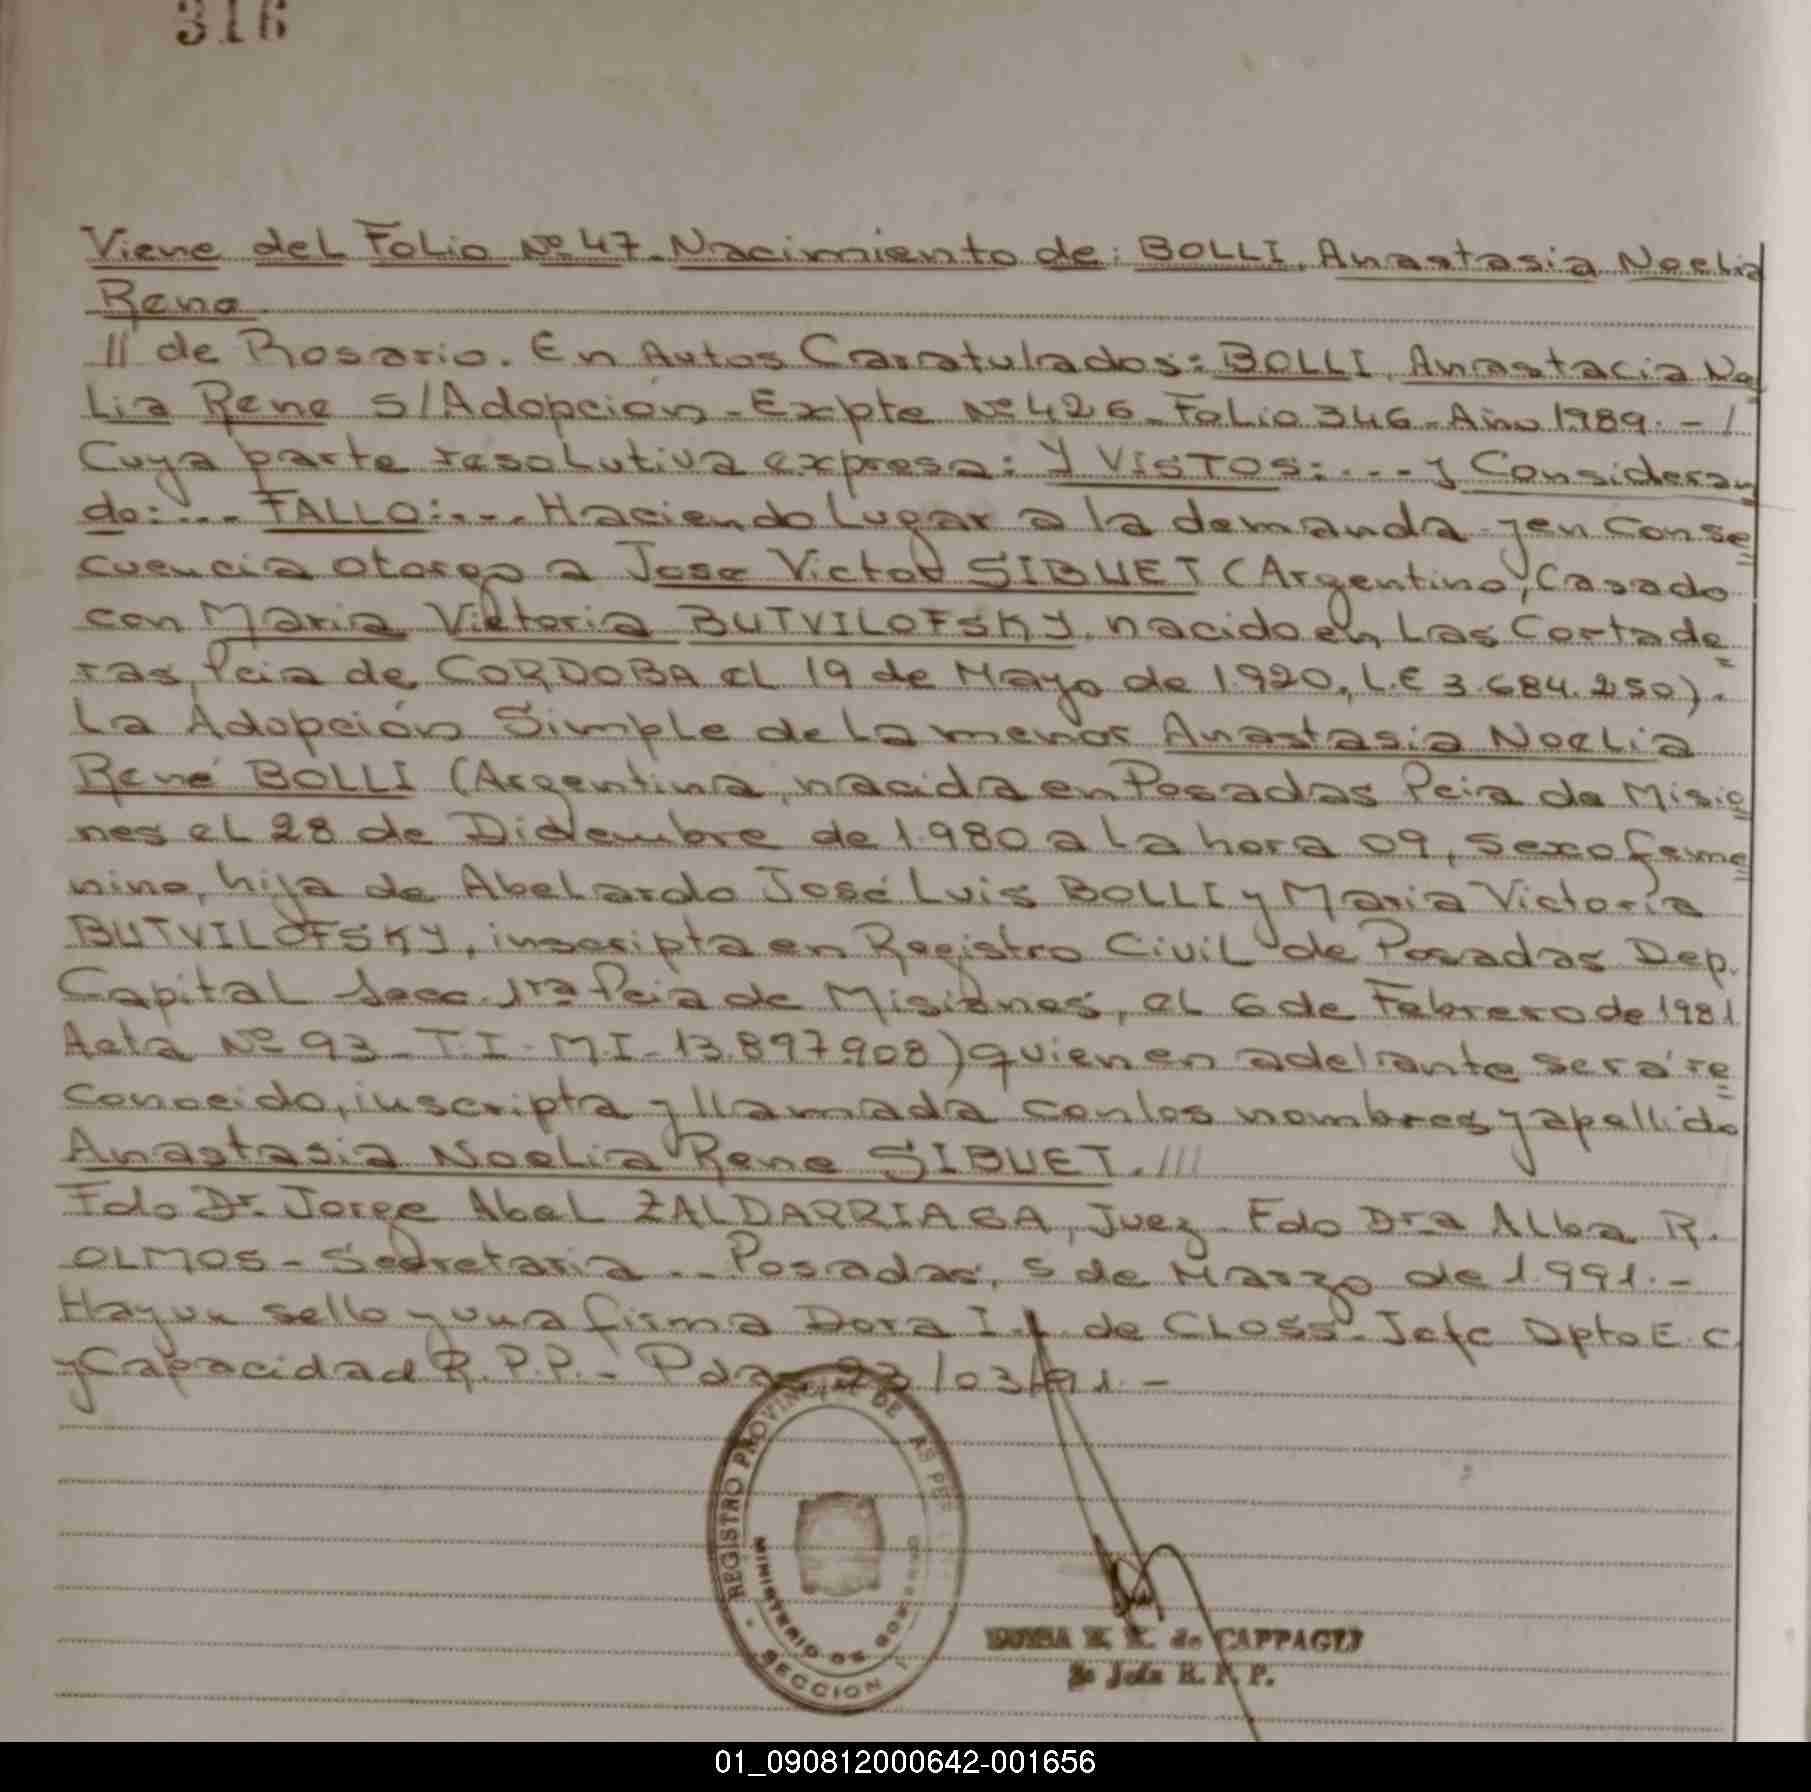 316
Viene del Folio Nº 47. Nacimiento de: BOLLI, Anastasia Noelia
Rene
// de Rosario. En Autos Caratulados: BOLLI, Anastacia No
Lia Rene S/Adopción - Expte Nº 426 - Folio 346 - Año 1989. - /
Cuya parte resolutiva expresa: Y VISTOS: ... y Consideran
do: ... FALLO: ... Haciendo Lugar a la demanda y en Conse
cuencia otorgo a Jose Victor SIBUET (Argentino, Casado
con Maria Viktoria BUTVILOFSKY, nacido en Las Cortade
ras, Pcia de CORDOBA el 19 de Mayo de 1.920, L.E 3.684.250).
La Adopción Simple de La menor Anastasia Noelia
René BOLLI (Argentina, nacida en Posadas Pcia de Misio
nes el 28 de Diciembre de 1.980 a La hora 09, sexo feme
nino, hija de Abelardo José Luis BOLLI y Maria Victoria
BUTVILOFSKY, inscripta en Registro Civil de Posadas Dep.
Capital Secc. 1ra Pcia de Misiones, el 6 de Febrero de 1981
Acta Nº 93 - T.I - M.I - 13.897.908) quien en adelante será re
conocido, inscripta y llamada con los nombres y apellido
Anastasia Noelia Rene SIBUET. ///
Fdo Dr. Jorge Abel ZALDARRIAGA, Juez - Fdo Dra Alba R.
OLMOS - Secretaria .. Posadas, 5 de Marzo de 1.991. -
Hay un sello y una firma Dora I. de CLOSS - Jefe Dpto E. C.
y Capacidad R.P.P. - Pdas 23/03/91. -
REGISTRO PROVINCIAL DE AS PE
MINISTERIO DE GOBIERNO
SECCION
K. de CAPPAGLI
Jefa R. P. P.
01_090812000642-001656